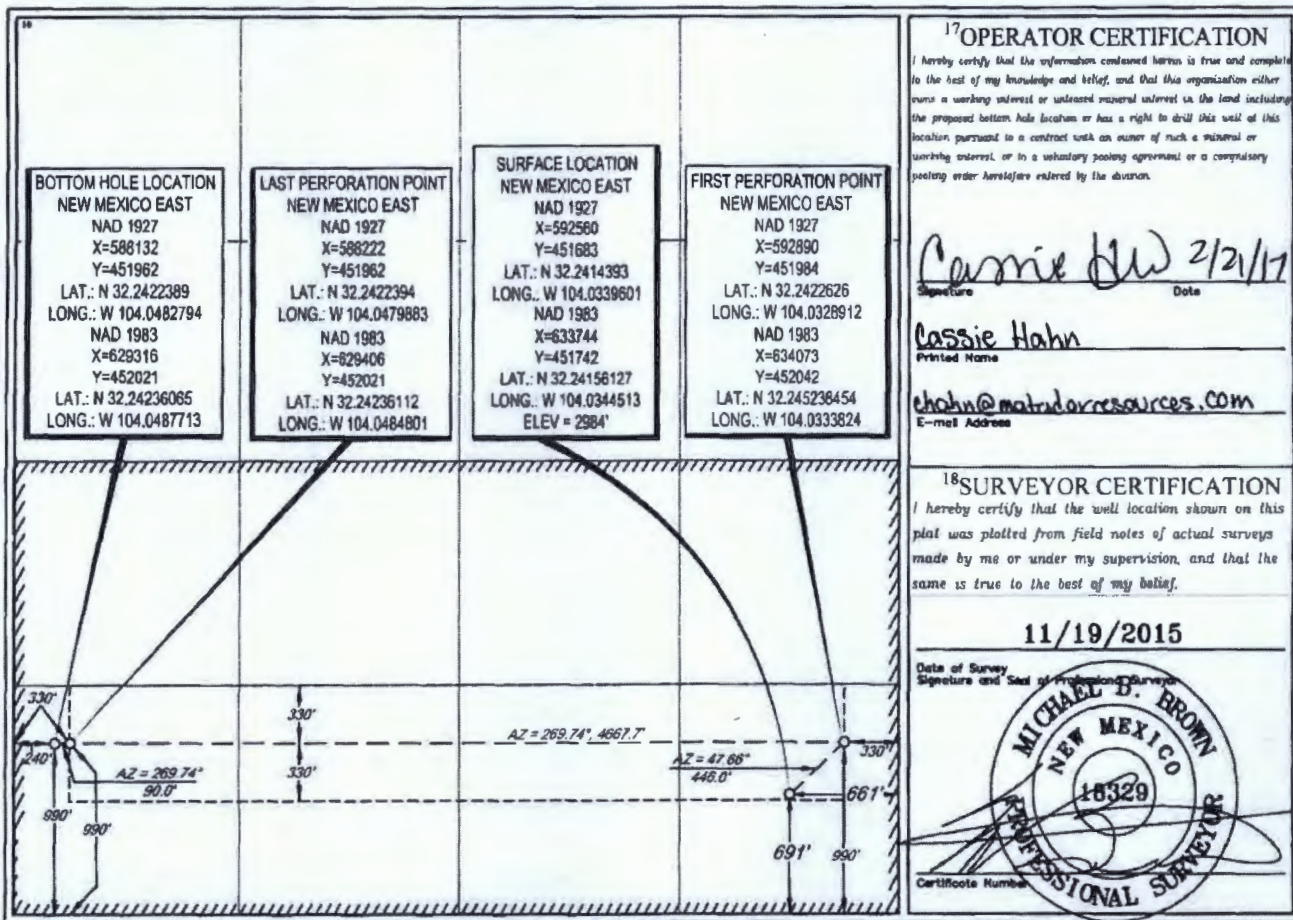 16
BOTTOM HOLE LOCATION
NEW MEXICO EAST
NAD 1927
X=588132
Y=451962
LAT.: N 32.2422389
LONG.: W 104.0482794
NAD 1983
X=629316
Y=452021
LAT.: N 32.24236065
LONG.: W 104.0487713
LAST PERFORATION POINT
NEW MEXICO EAST
NAD 1927
X=588222
Y=451962
LAT.: N 32.2422394
LONG.: W 104.0479883
NAD 1983
X=629406
Y=452021
LAT.: N 32.24236112
LONG.: W 104.0484801
SURFACE LOCATION
NEW MEXICO EAST
NAD 1927
X=592560
Y=451683
LAT.: N 32.2414393
LONG.: W 104.0339601
NAD 1983
X=633744
Y=451742
LAT.: N 32.24156127
LONG.: W 104.0344513
ELEV = 2984'
FIRST PERFORATION POINT
NEW MEXICO EAST
NAD 1927
X=592890
Y=451984
LAT.: N 32.2422626
LONG.: W 104.0328912
NAD 1983
X=634073
Y=452042
LAT.: N 32.245236454
LONG.: W 104.0333824
330'
240'
AZ = 269.74°
90.0'
990'
990'
330'
330'
AZ = 269.74°, 4667.7'
AZ = 47.66°
446.0'
330'
661'
691'
990'
17OPERATOR CERTIFICATION
I hereby certify that the information contained herein is true and complete
to the best of my knowledge and belief, and that this organization either
owns a working interest or unleased mineral interest in the land including
the proposed bottom hole location or has a right to drill this well at this
location pursuant to a contract with an owner of such a mineral or
working interest, or to a voluntary pooling agreement or a compulsory
pooling order heretofore entered by the division.
2/21/17
Signature Date
Cassie Hahn
Printed Name
chahn@matadorresources.com
E-mail Address
18SURVEYOR CERTIFICATION
I hereby certify that the well location shown on this
plat was plotted from field notes of actual surveys
made by me or under my supervision, and that the
same is true to the best of my belief.
11/19/2015
Date of Survey
Signature and Seal of Professional Surveyor
MICHAEL B. BROWN
NEW MEXICO
18329
PROFESSIONAL SURVEYOR
Certificate Number